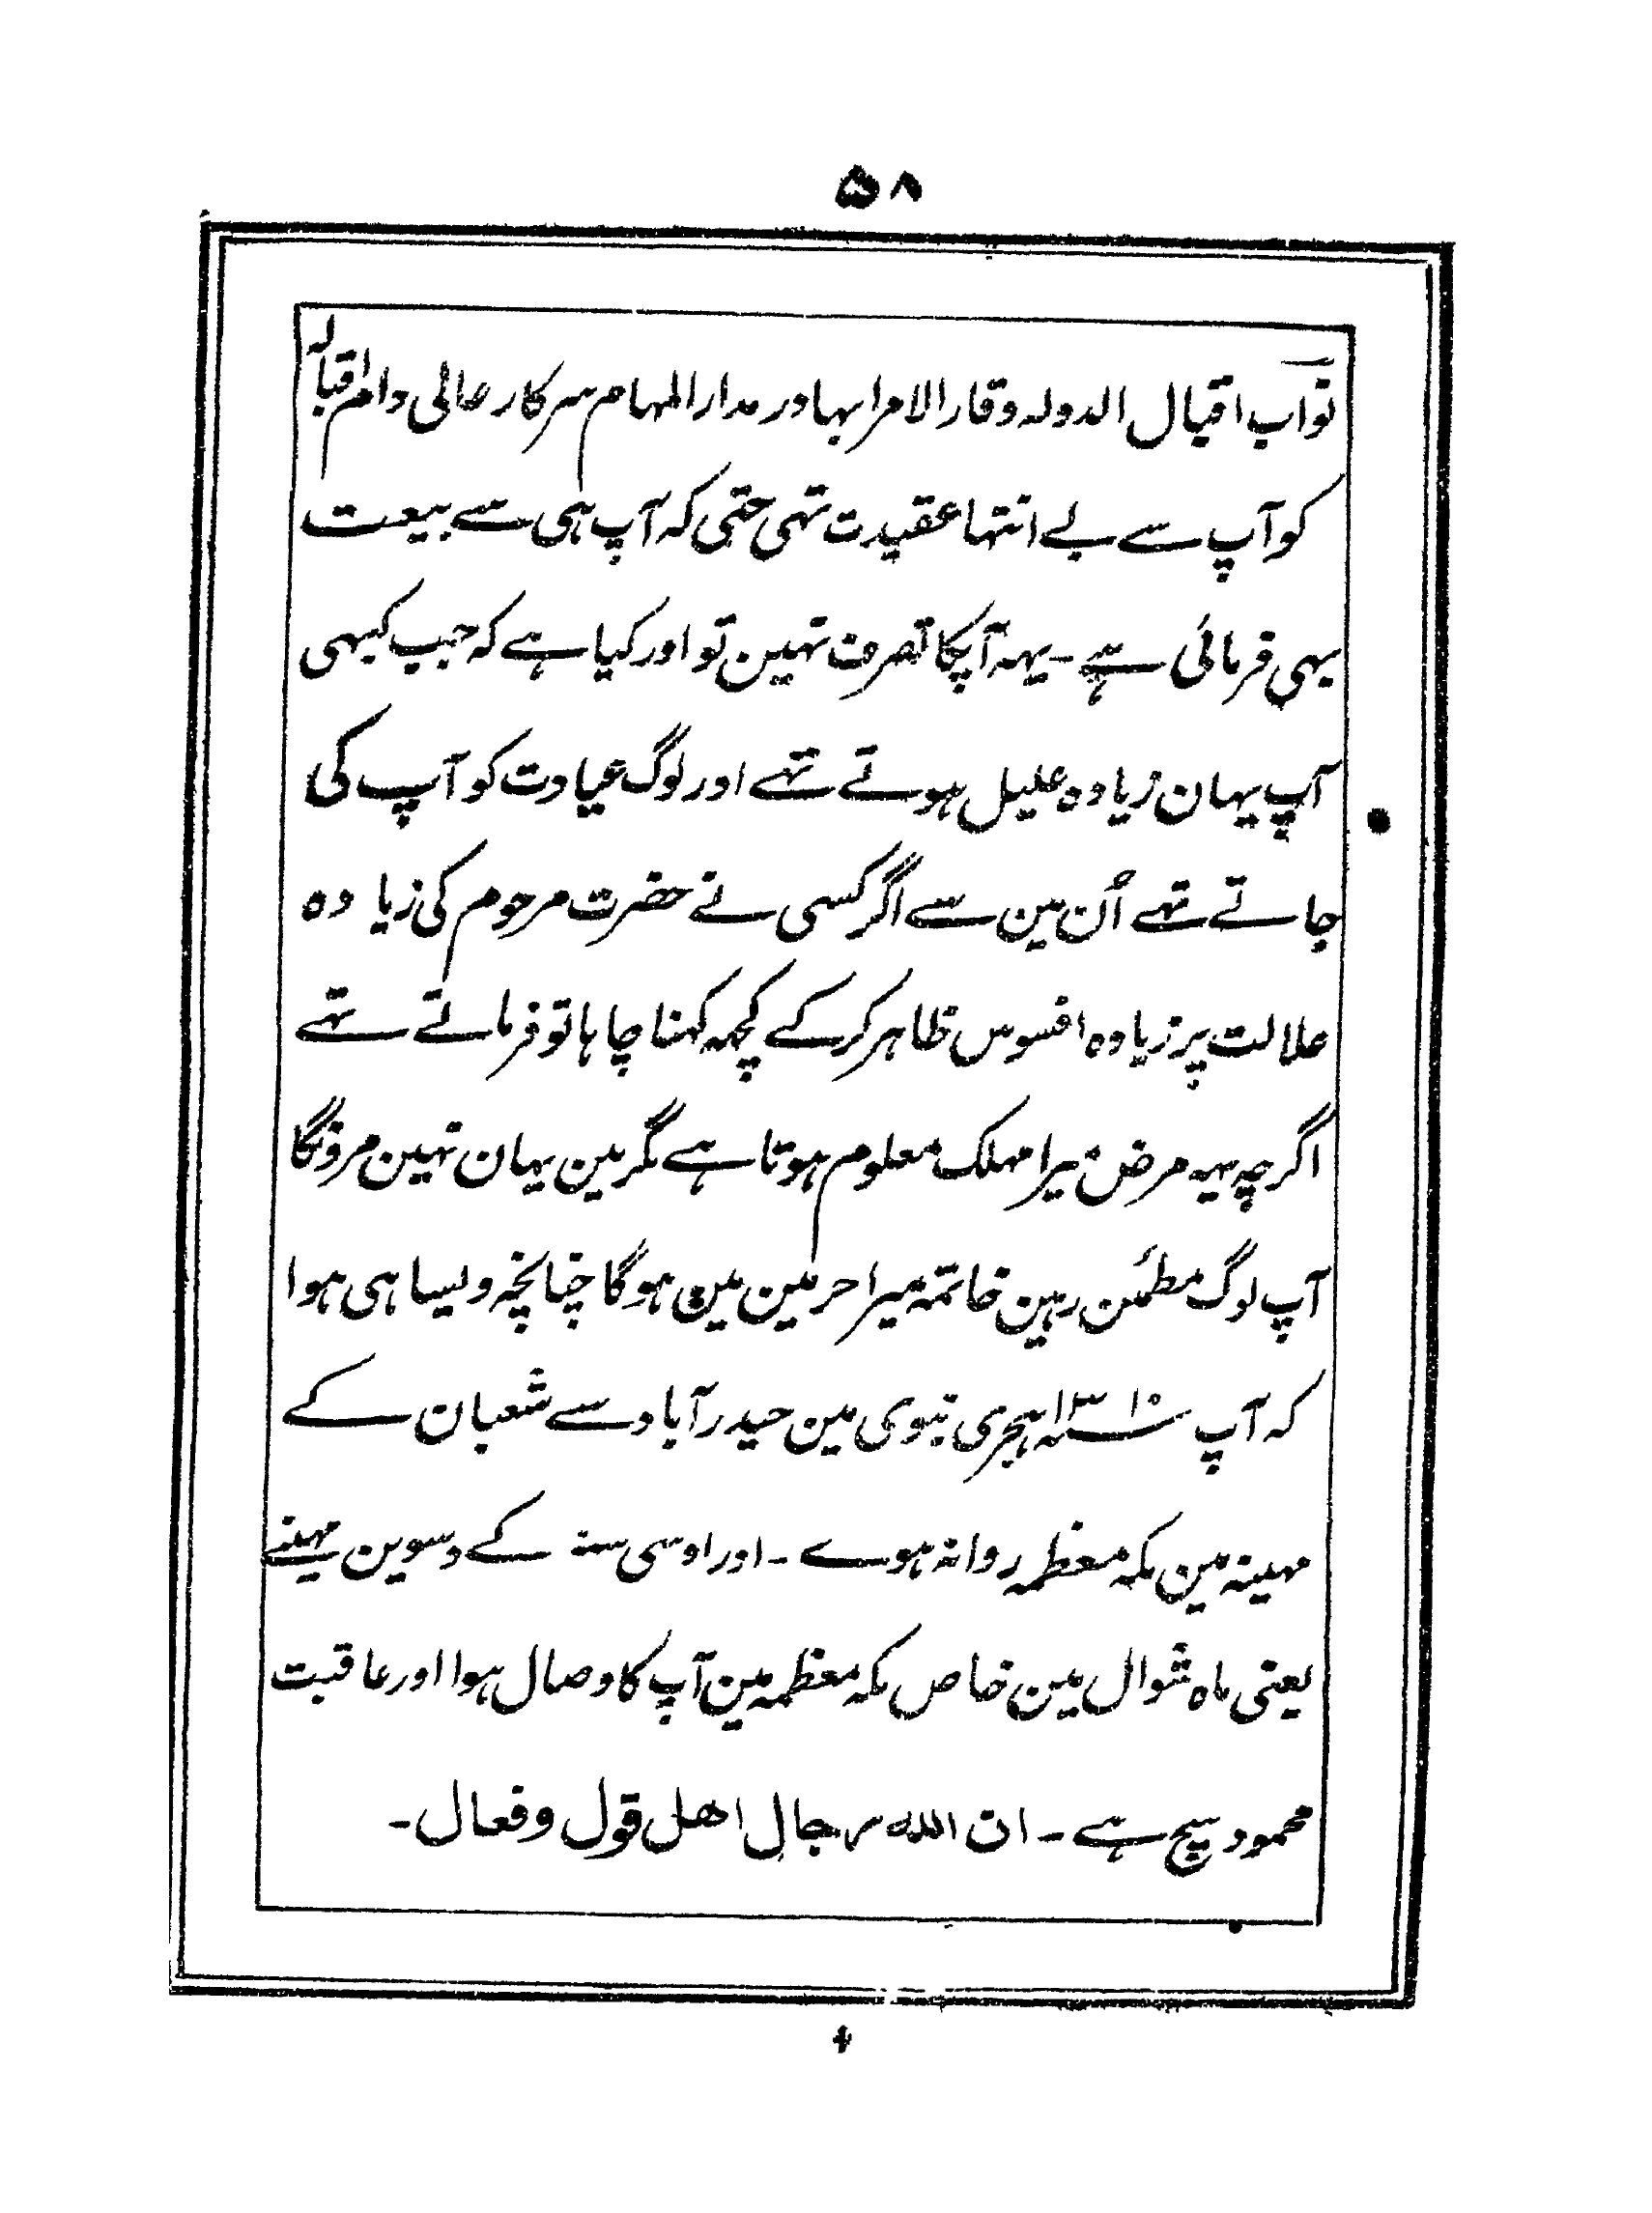 ۵۸
نواب اقبال الدولہ وقار الامرا بہادر مدار المہام سرکار عالی دام اقبالہ
کو آپ سے بے انتہا عقیدت تہی حتی کہ آپ ہی سے بیعت
بہی فرمائی ہے ۔ یہہ آپکا تصرف نہین تو اور کیا ہے کہ جب کبہی
آپ یہان زیادہ علیل ہوتے تہے اور لوگ عیادت کو آپ کی
جاتے تہے اُن مین سے اگر کسی نے حضرت مرحوم کی زیادہ
علالت پر زیادہ افسوس ظاہر کرکے کچہہ کہنا چاہا تو فرماتے تہے
اگرچہ یہہ مرض میرا مہلک معلوم ہوتا ہے مگر مین یہان نہین مرونگا
آپ لوگ مطمئن رہین خاتمہ میرا حرمین مین ہوگا چنانچہ ویسا ہی ہوا
کہ آپ ۱۳۱۰؁ ہجری نبوی مین حیدرآباد سے شعبان کے
مہینہ مین مکہ معظمہ روانہ ہوے ۔ اور اوسی سنہ کے دسوین مہینے
یعنی ماہ شوال مین خاص مکہ معظمہ مین آپ کا وصال ہوا اور عاقبت
محمود سچ ہے ۔ ان اللہ رجال اهل قول و فعال ۔